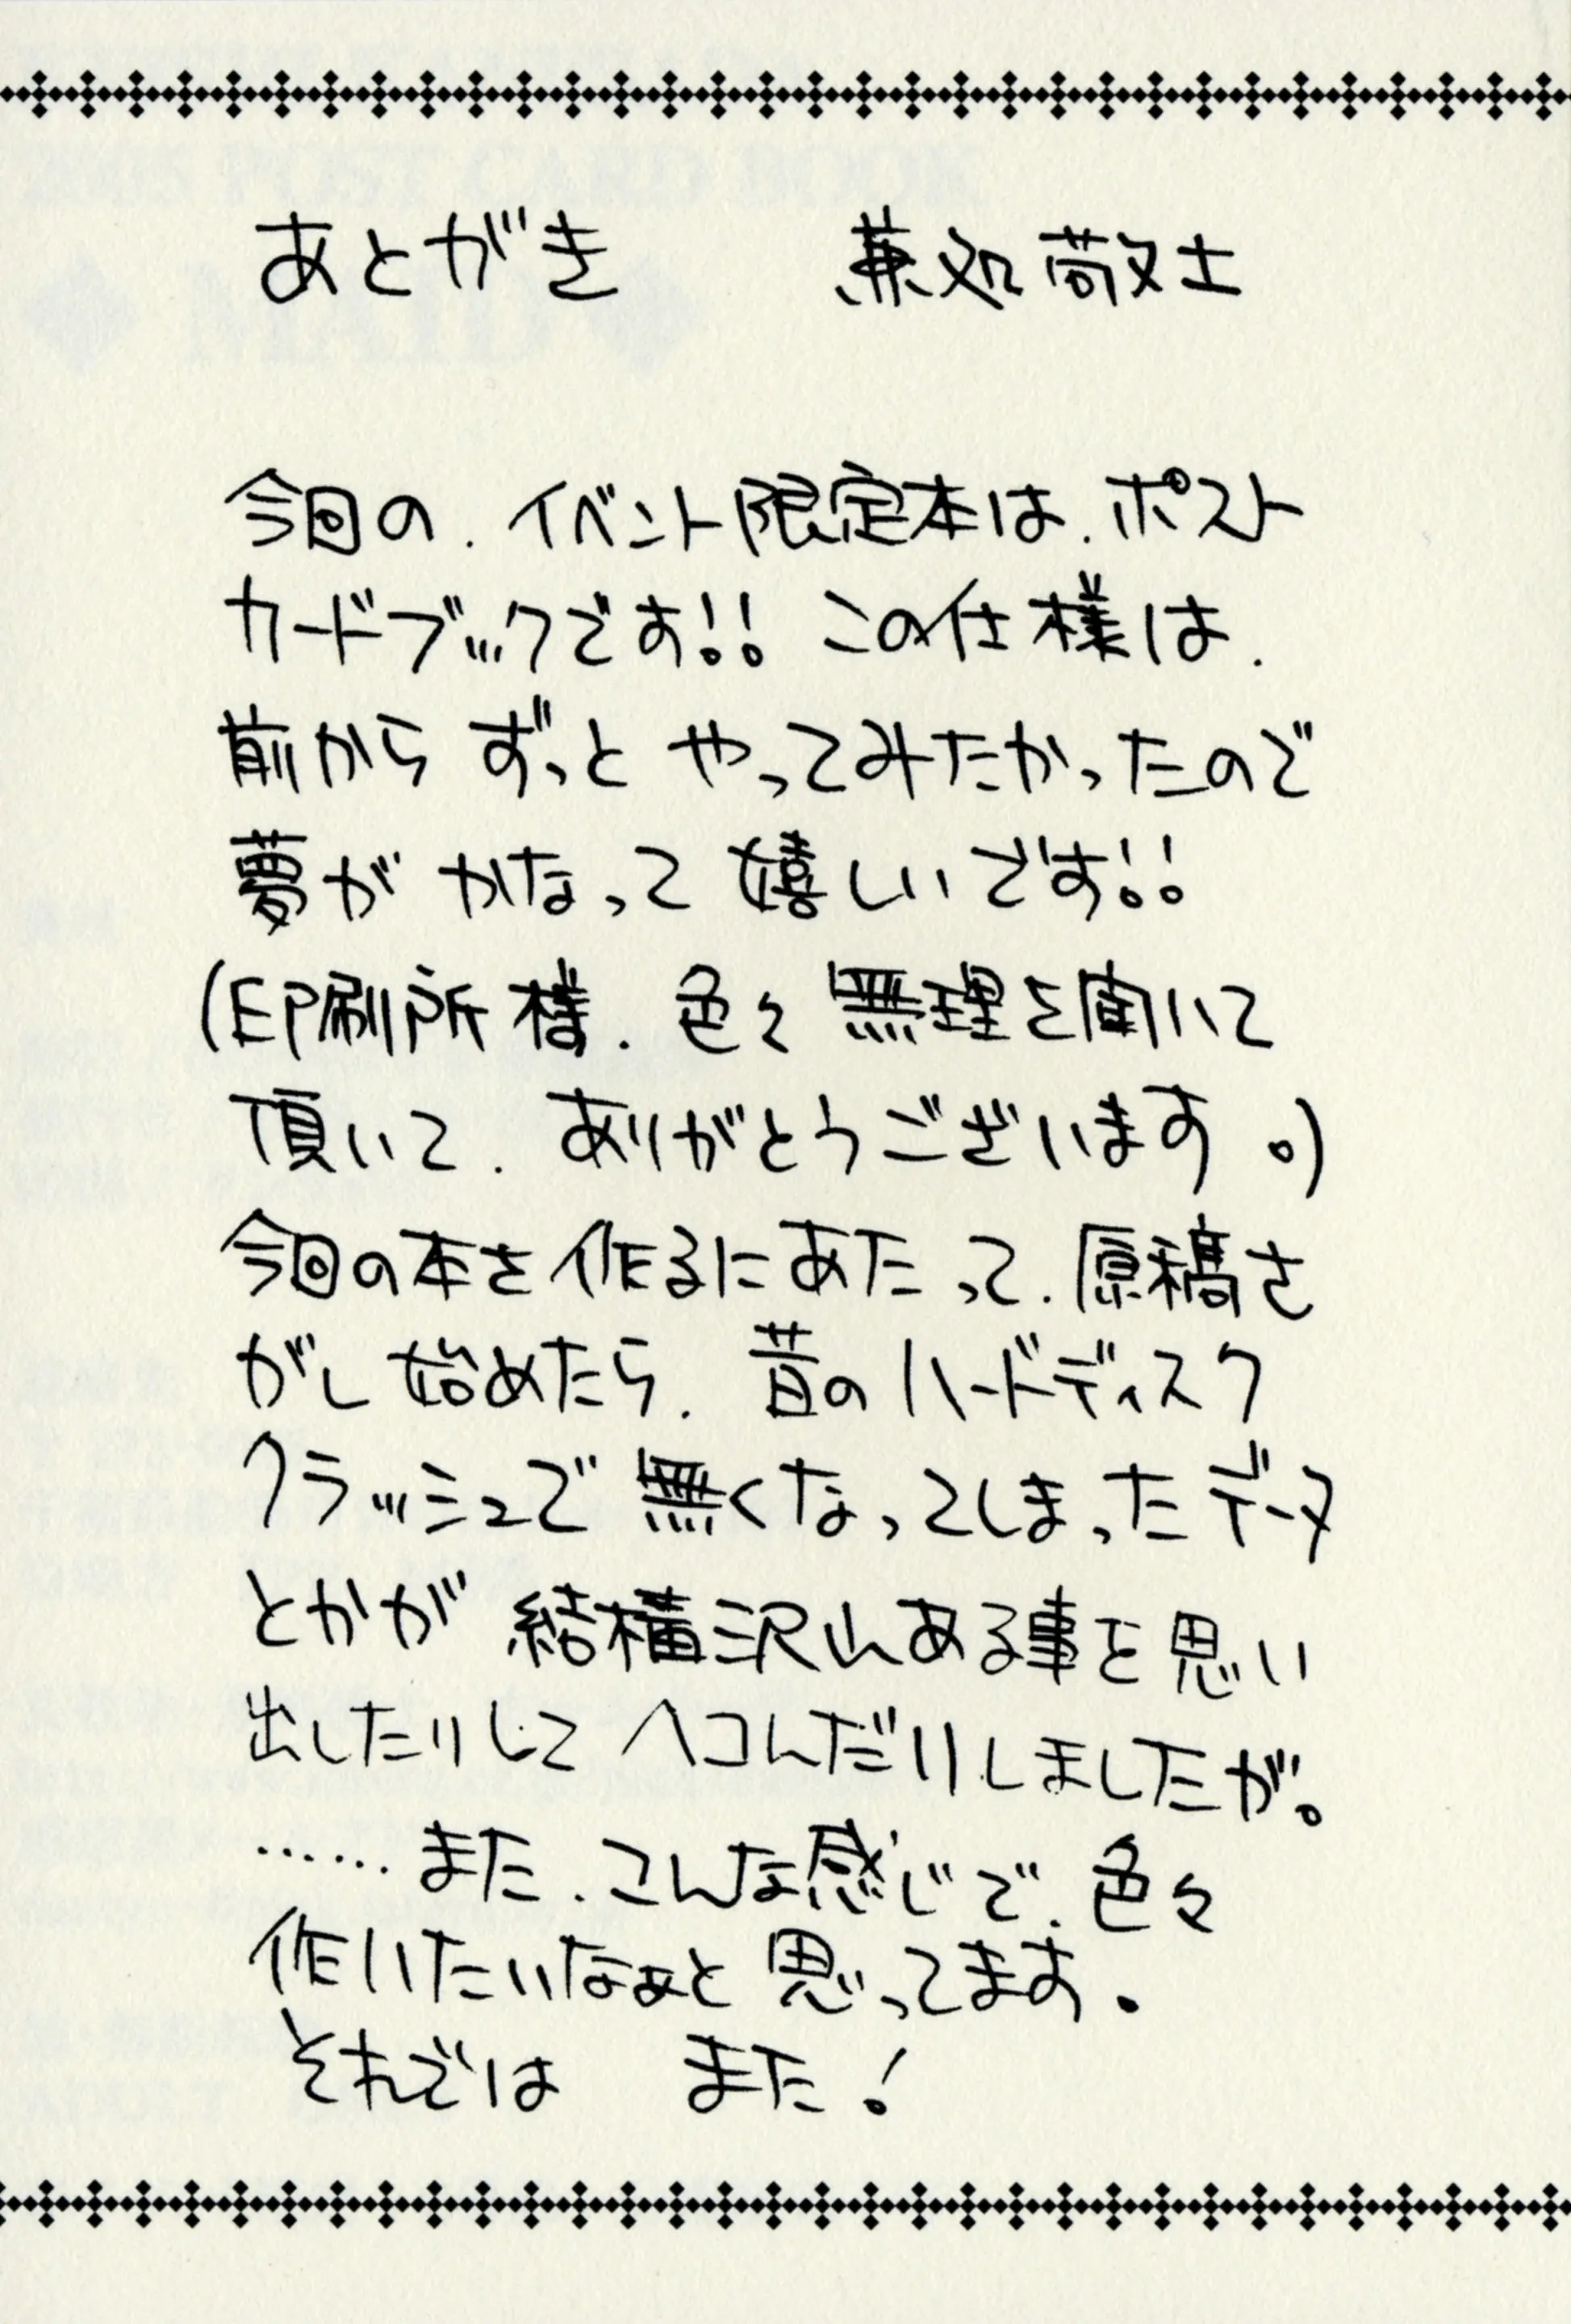 あとがき　兼処敬士
今回の、イベント限定本は、ポスト
カードブックです!! この仕様は、
前から ずっと やってみたかったので
夢が かなって 嬉しいです!!
(印刷所様、色々無理を聞いて
頂いて、ありがとうございます。)
今回の本を作るにあたって、原稿さ
がし始めたら、昔のハードディスク
クラッシュで無くなってしまったデータ
とかが 結構沢山ある事を思い
出したりして ヘコんだりしましたが。
……また、こんな感じで、色々
作りたいなぁと思ってます。
それでは　また!